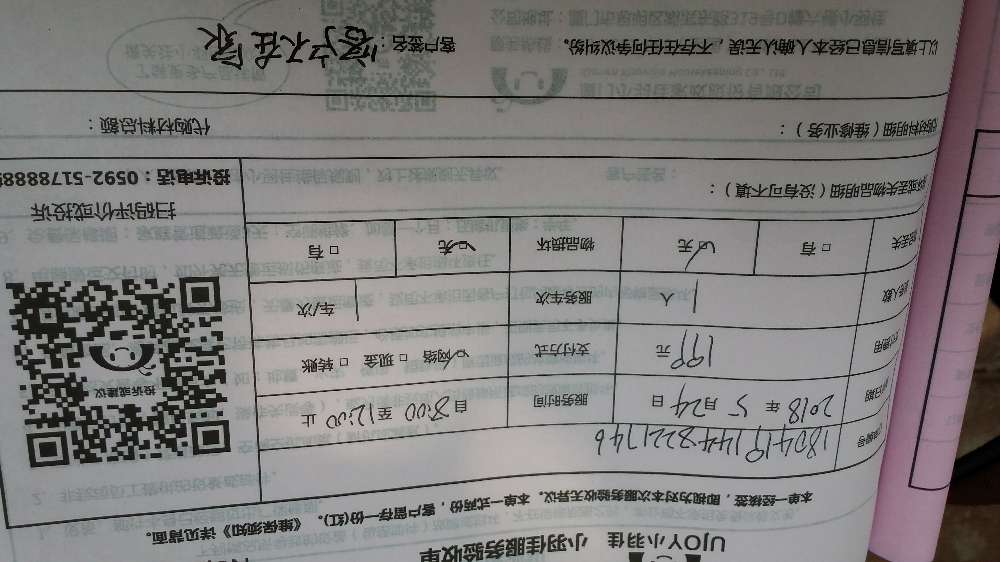 UJOY小羽佳 小羽佳服务验收单
本单一经核签，即视为对本次服务验收无异议。本单一式两份，客户留存一份(红)。《维保须知》详见背面。
编号 180419144832221746
日期 2018 年 5 月 24 日 服务时间 自 8:00 至 12:00 止
费用 199 元 支付方式 ☑网络 □ 现金 □ 转账
人数 1 人 服务车次 1 车/次
丢失 □ 有 ☑无 物品损坏 ☑无 □ 有
投诉或建议
扫码评价或投诉
投诉电话：0592-5178888
或丢失物品明细（没有可不填）：
代购材料明细（维修业务）： 代购材料总额：
以上填写信息已经本人确认无误，不存在任何争议纠纷。 客户签名：客户不在家